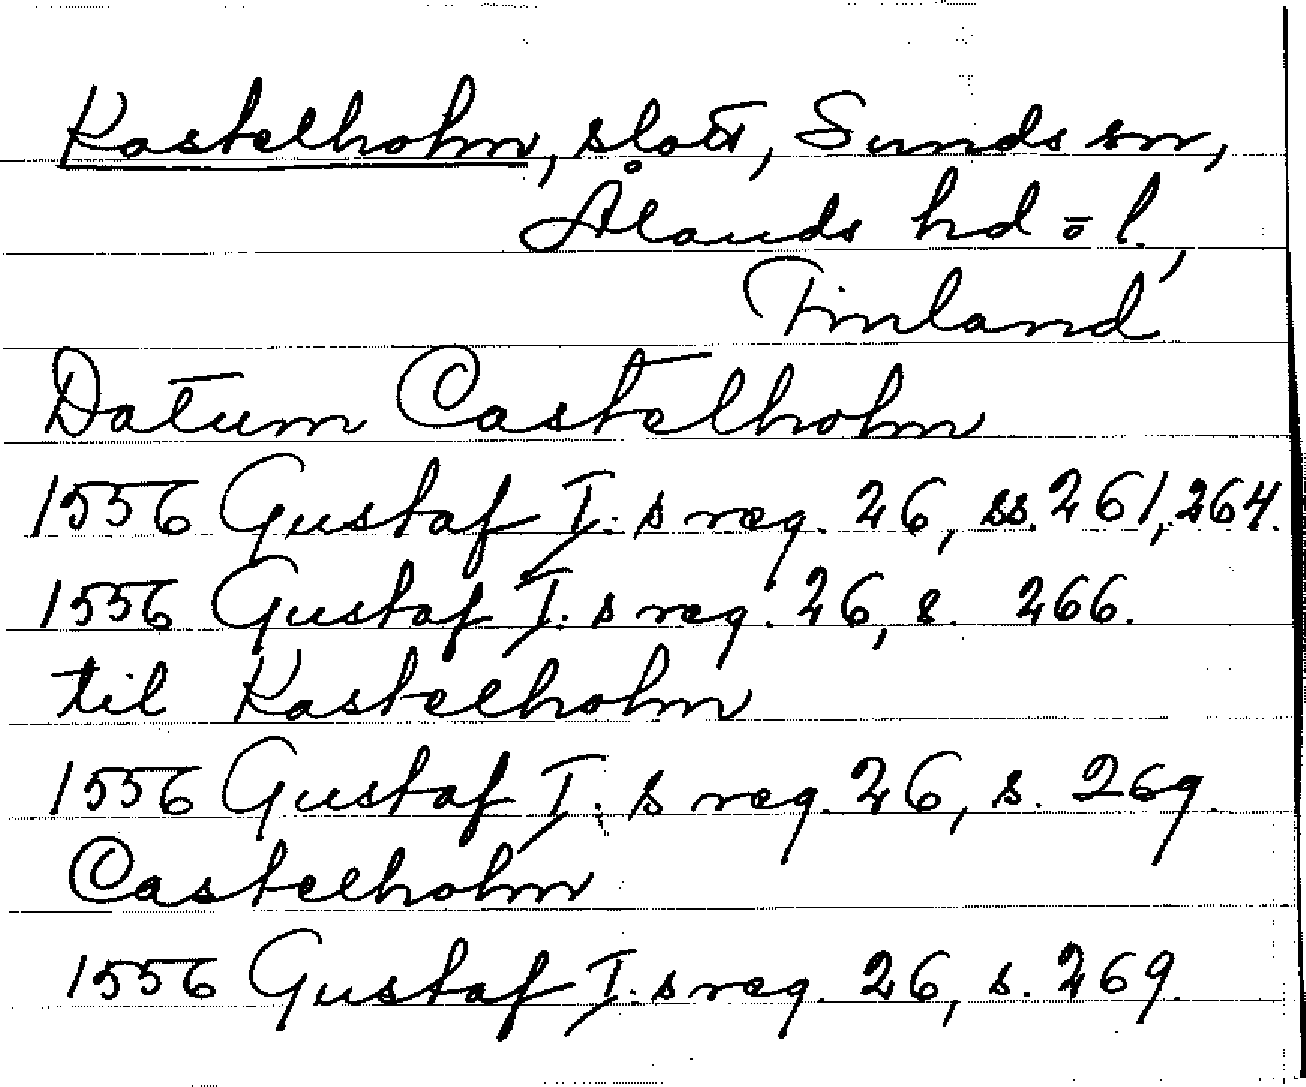 Kastelholm, slott, Sunds sn,
Ålands hd o l.,
Finland
Datum Castelholm
1556 Gustaf I:s reg. 26, ss. 261, 264.
1556 Gustaf I:s reg. 26, s. 266.
til Kastelholm
1556 Gustaf I:s reg. 26, s. 269.
Castelholm
1556 Gustaf I:s reg. 26, s. 269.